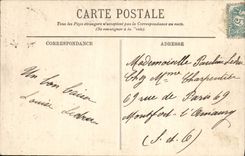 CARTE POSTALE
Tous les Pays étrangers n'acceptent pas la Correspondance au recto.
(Se renseigner à la Poste)
CORRESPONDANCE
ADRESSE
Un bon baiser
Mademoiselle
Chez Mme Charpentier
69 rue de Paris 69
Montfort-l'Amaury
(S. &. O)